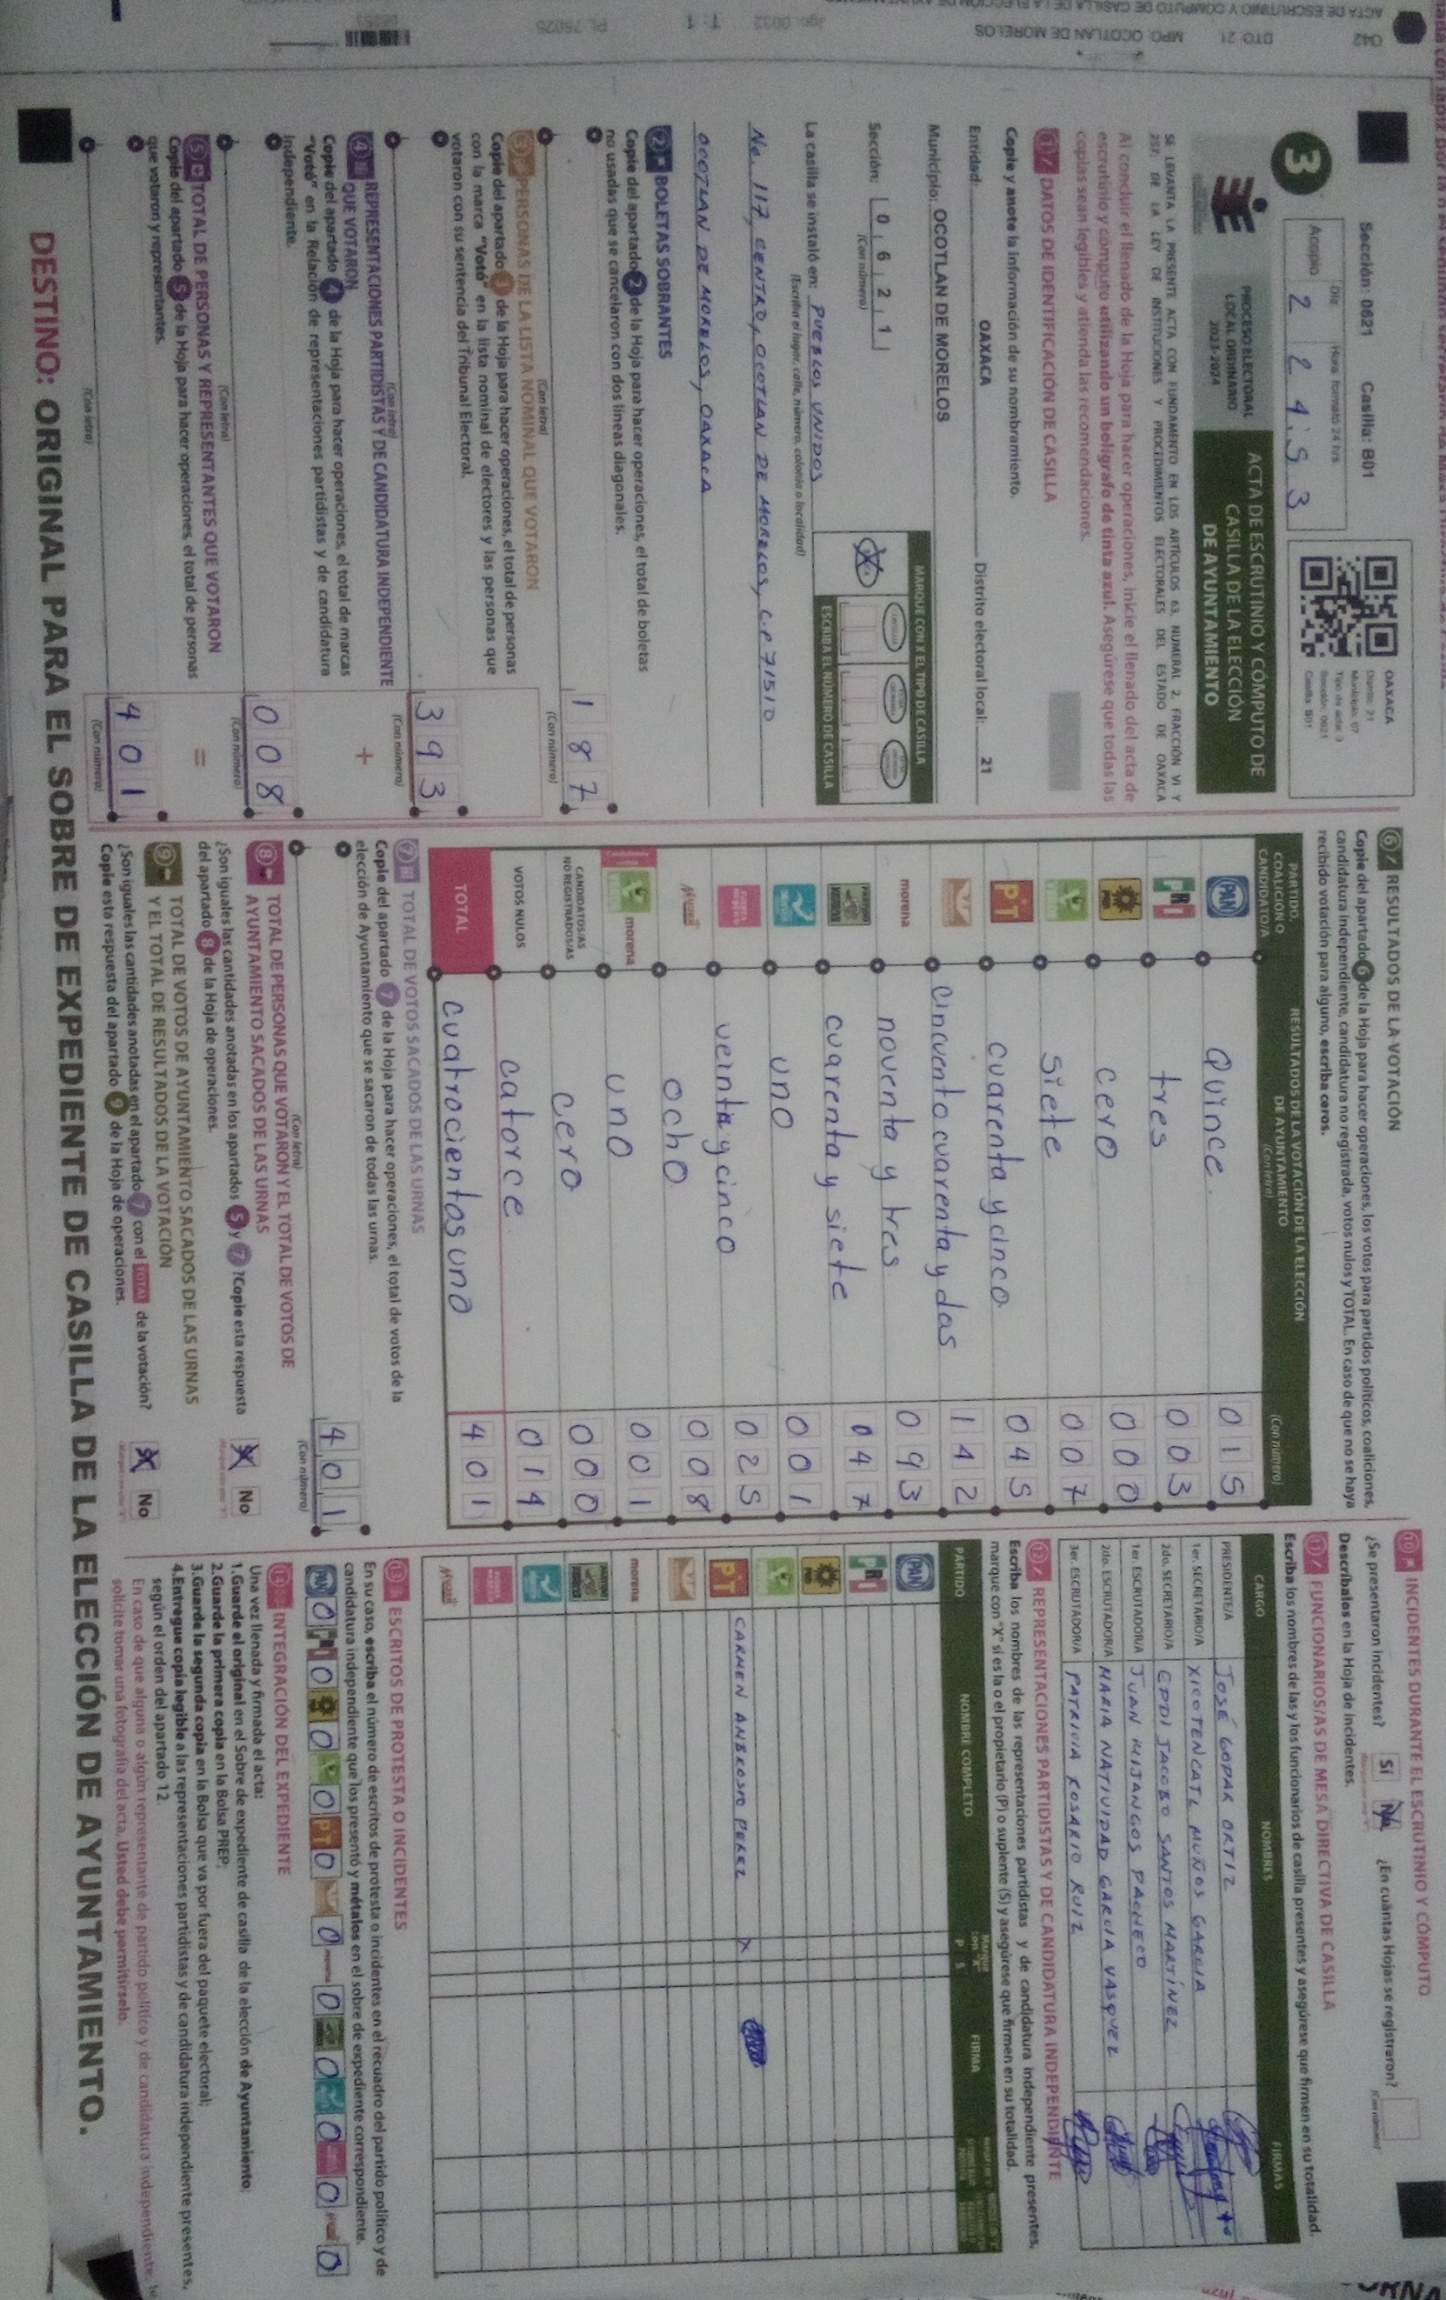 042 DTO: 21 MPO: OCOTLAN DE MORELOS
Sección: 0621 Casilla: B01
3
Acopio
Día Hora formato 24 hrs
2 2 4:53
OAXACA
Distrito: 21
Sección: 0621
Casilla: B01
PROCESO ELECTORAL
LOCAL ORDINARIO
2023-2024
ACTA DE ESCRUTINIO Y CÓMPUTO DE
CASILLA DE LA ELECCIÓN
DE AYUNTAMIENTO
SE LEVANTA LA PRESENTE ACTA CON FUNDAMENTO EN LOS ARTÍCULOS 63, NUMERAL 2, FRACCIÓN VI Y
237, DE LA LEY DE INSTITUCIONES Y PROCEDIMIENTOS ELECTORALES DEL ESTADO DE OAXACA
Al concluir el llenado de la Hoja para hacer operaciones, inicie el llenado del acta de
escrutinio y cómputo utilizando un bolígrafo de tinta azul. Asegúrese que todas las
copias sean legibles y atienda las recomendaciones.
1 DATOS DE IDENTIFICACIÓN DE CASILLA
Copie y anote la información de su nombramiento.
Entidad: OAXACA Distrito electoral local: 21
Municipio: OCOTLAN DE MORELOS
Sección: 0 6 2 1
(Con número)
MARQUE CON X EL TIPO DE CASILLA
ESCRIBA EL NÚMERO DE CASILLA
La casilla se instaló en: PUEBLOS UNIDOS
(Escriba el lugar, calle, número, colonia o localidad)
No. 117, CENTRO, OCOTLAN DE MORELOS, C.P 71510
OCOTLAN DE MORELOS, OAXACA
2 BOLETAS SOBRANTES
Copie del apartado 2 de la Hoja para hacer operaciones, el total de boletas
no usadas que se cancelaron con dos líneas diagonales.
187
(Con letra) (Con número)
3 PERSONAS DE LA LISTA NOMINAL QUE VOTARON
Copie del apartado 3 de la Hoja para hacer operaciones, el total de personas
con la marca "Votó" en la lista nominal de electores y las personas que
votaron con su sentencia del Tribunal Electoral.
393
(Con letra) (Con número)
4 REPRESENTACIONES PARTIDISTAS Y DE CANDIDATURA INDEPENDIENTE
QUE VOTARON
+
Copie del apartado 4 de la Hoja para hacer operaciones, el total de marcas
"Votó" en la Relación de representaciones partidistas y de candidatura
independiente.
008
(Con letra) (Con número)
5 TOTAL DE PERSONAS Y REPRESENTANTES QUE VOTARON
=
Copie del apartado 5 de la Hoja para hacer operaciones, el total de personas
que votaron y representantes.
401
(Con letra) (Con número)
6 RESULTADOS DE LA VOTACIÓN
Copie del apartado 6 de la Hoja para hacer operaciones, los votos para partidos políticos, coaliciones,
candidatura independiente, candidatura no registrada, votos nulos y TOTAL. En caso de que no se haya
recibido votación para alguno, escriba ceros.
PARTIDO, COALICIÓN O CANDIDATO/A
RESULTADOS DE LA VOTACIÓN DE LA ELECCIÓN DE AYUNTAMIENTO
(Con letra) (Con número)
PAN Quince 015
PRI tres 003
PRD cero 000
siete 007
PT cuarenta y cinco 045
cincuento cuarenta y dos 142
morena noventa y tres 093
cuarenta y siete 047
uno 001
veinte y cinco 025
ocho 008
morena uno 001
CANDIDATOS/AS NO REGISTRADOS/AS cero 000
VOTOS NULOS catorce 014
TOTAL cuatrocientos uno 401
7 TOTAL DE VOTOS SACADOS DE LAS URNAS
Copie del apartado 7 de la Hoja para hacer operaciones, el total de votos de la
elección de Ayuntamiento que se sacaron de todas las urnas.
401
(Con letra) (Con número)
8 TOTAL DE PERSONAS QUE VOTARON Y EL TOTAL DE VOTOS DE
AYUNTAMIENTO SACADOS DE LAS URNAS
¿Son iguales las cantidades anotadas en los apartados 5 y 7? Copie esta respuesta
del apartado 8 de la Hoja de operaciones.
No
9 TOTAL DE VOTOS DE AYUNTAMIENTO SACADOS DE LAS URNAS
Y EL TOTAL DE RESULTADOS DE LA VOTACIÓN
¿Son iguales las cantidades anotadas en el apartado 7 con el TOTAL de la votación?
Copie esta respuesta del apartado 9 de la Hoja de operaciones.
No
10 INCIDENTES DURANTE EL ESCRUTINIO Y CÓMPUTO
¿Se presentaron incidentes? Sí No ¿En cuántas Hojas se registraron?
(Con número)
Descríbalos en la Hoja de incidentes.
11 FUNCIONARIOS/AS DE MESA DIRECTIVA DE CASILLA
Escriba los nombres de las y los funcionarios de casilla presentes y asegúrese que firmen en su totalidad.
CARGO NOMBRES FIRMAS
PRESIDENTE/A JOSÉ GOPAR ORTIZ
1er. SECRETARIO/A XICOTENCATL MUÑOS GARCIA
2do. SECRETARIO/A CPDI JACOBO SANTOS MARTÍNEZ
1er. ESCRUTADOR/A JUAN MIJANGOS PACHECO
2do. ESCRUTADOR/A MARIA NATIVIDAD GARCIA VASQUEZ
3er. ESCRUTADOR/A PATRICIA ROSARIO RUIZ
12 REPRESENTACIONES PARTIDISTAS Y DE CANDIDATURA INDEPENDIENTE
Escriba los nombres de las representaciones partidistas y de candidatura independiente presentes,
marque con "X" si es la o el propietario (P) o suplente (S) y asegúrese que firmen en su totalidad.
PARTIDO NOMBRE COMPLETO Marque con "X" P S FIRMA
PAN
PRI
PRD
PT CARMEN AMBROSIO PEREZ X
morena
13 ESCRITOS DE PROTESTA O INCIDENTES
En su caso, escriba el número de escritos de protesta o incidentes en el recuadro del partido político y de
candidatura independiente que los presentó y métalos en el sobre de expediente correspondiente.
PAN 0 PRI 0 0 0 PT 0 0 0 0 0 0 0
14 INTEGRACIÓN DEL EXPEDIENTE
Una vez llenada y firmada el acta:
1.Guarde el original en el Sobre de expediente de casilla de la elección de Ayuntamiento;
2.Guarde la primera copia en la Bolsa PREP;
3.Guarde la segunda copia en la Bolsa que va por fuera del paquete electoral;
4.Entregue copia legible a las representaciones partidistas y de candidatura independiente presentes,
según el orden del apartado 12.
En caso de que alguna o algún representante de partido político y de candidatura independiente, le
solicite tomar una fotografía del acta, Usted debe permitírselo.
DESTINO: ORIGINAL PARA EL SOBRE DE EXPEDIENTE DE CASILLA DE LA ELECCIÓN DE AYUNTAMIENTO.